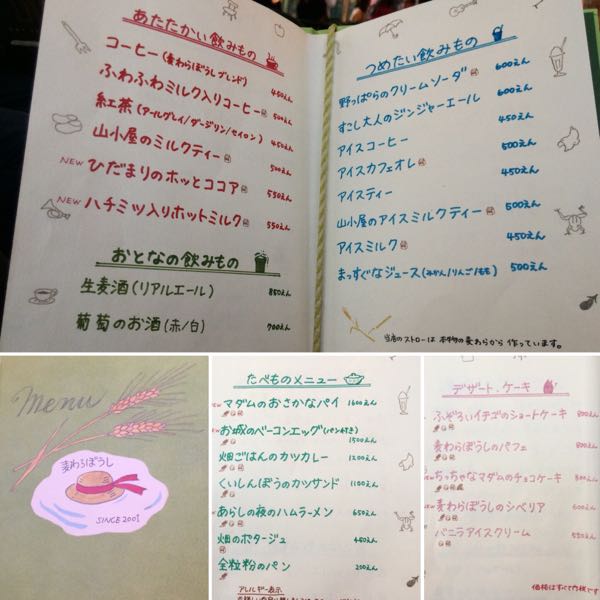 あたたかい飲みもの
コーヒー(麦わらぼうしブレンド) 450えん
ふわふわミルク入りコーヒー 500えん
紅茶(アールグレイ/ダージリン/セイロン) 450えん
山小屋のミルクティー 500えん
NEW ひだまりのホッとココア 550えん
NEW ハチミツ入りホットミルク 550えん
おとなの飲みもの
生麦酒(リアルエール) 850えん
葡萄のお酒(赤/白) 700えん
つめたい飲みもの
野っぱらのクリームソーダ 600えん
すこし大人のジンジャーエール 600えん
アイスコーヒー 450えん
アイスカフェオレ 500えん
アイスティー 450えん
山小屋のアイスミルクティー 500えん
アイスミルク 450えん
まっすぐなジュース(みかん/りんご/もも) 500えん
当店のストローは 本物の麦わらから 作っています。
Menu
麦わらぼうし
SINCE 2001
たべものメニュー
マダムのおさかなパイ 1600えん
お城のベーコンエッグ(パン付き) 1500えん
畑ごはんのカツカレー 1200えん
くいしんぼうのカツサンド 1100えん
あらしの夜のハムラーメン 650えん
畑のポタージュ 450えん
全粒粉のパン 200えん
アレルギー表示
デザート・ケーキ
ふぞろいイチゴのショートケーキ 800えん
麦わらぼうしのパフェ 800えん
ちっちゃなマダムのチョコケーキ 800えん
麦わらぼうしのシベリア 600えん
バニラアイスクリーム 550えん
価格はすべて内税です